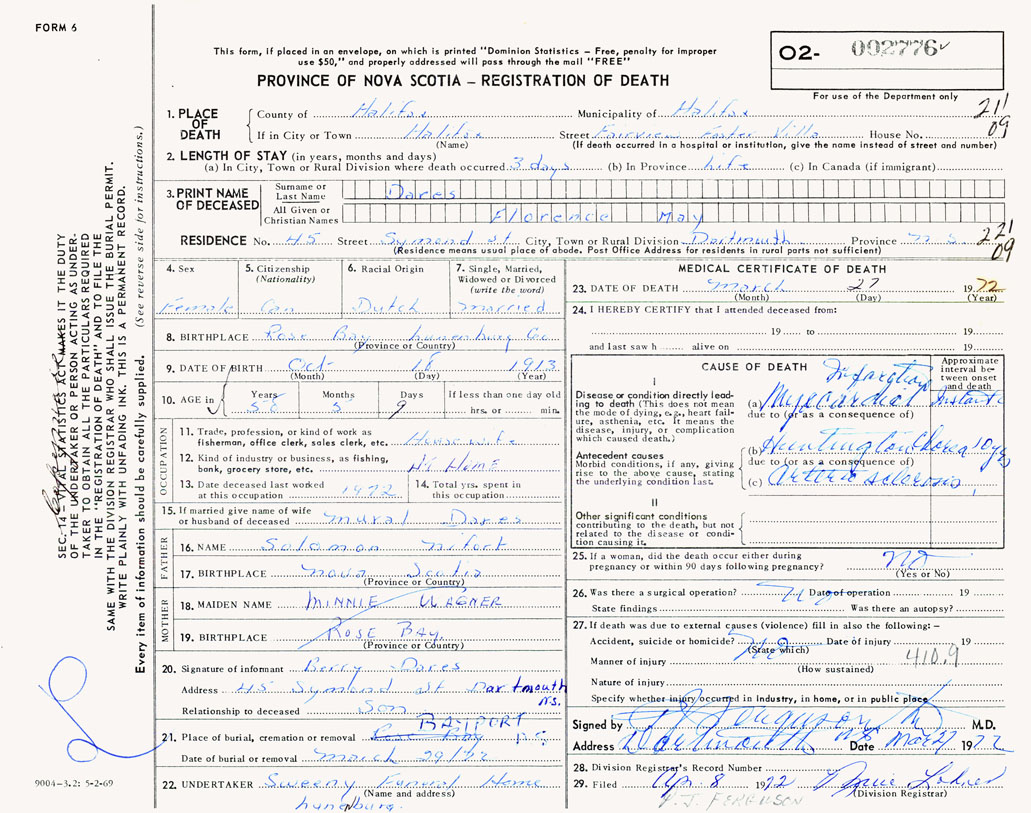 FORM 6
This form, if placed in an envelope, on which is printed "Dominion Statistics – Free, penalty for improper
use $50," and properly addressed will pass through the mail "FREE"
PROVINCE OF NOVA SCOTIA – REGISTRATION OF DEATH
O2- 002776
For use of the Department only
1. PLACE OF DEATH
County of Halifax Municipality of Halifax 211
If in City or Town Halifax Street Fairview Foster Villa House No. 09
(Name) (If death occurred in a hospital or institution, give the name instead of street and number)
2. LENGTH OF STAY (in years, months and days)
(a) In City, Town or Rural Division where death occurred 3 days (b) In Province Life (c) In Canada (if immigrant)
3. PRINT NAME OF DECEASED
Surname or Last Name Dares
All Given or Christian Names Florence May
RESIDENCE No. 45 Street Symond St. City, Town or Rural Division Dartmouth Province N S 221
09
(Residence means usual place of abode. Post Office Address for residents in rural parts not sufficient)
4. Sex
Female
5. Citizenship (Nationality)
Can
6. Racial Origin
Dutch
7. Single, Married, Widowed or Divorced (write the word)
married
8. BIRTHPLACE Rose Bay Lunenburg Co
(Province or Country)
9. DATE OF BIRTH Oct 18 1913
(Month) (Day) (Year)
10. AGE in Years 58 Months 5 Days 9 If less than one day old
hrs. or min.
OCCUPATION
11. Trade, profession, or kind of work as
fisherman, office clerk, sales clerk, etc. House wife
12. Kind of industry or business, as fishing,
bank, grocery store, etc. At Home
13. Date deceased last worked
at this occupation 1972
14. Total yrs. spent in
this occupation
15. If married give name of wife
or husband of deceased Mural Dares
FATHER
16. NAME Solomon
17. BIRTHPLACE Nova Scotia
(Province or Country)
MOTHER
18. MAIDEN NAME MINNIE WAGNER
19. BIRTHPLACE ROSE BAY
(Province or Country)
20. Signature of informant Berry Dares
Address 45 Symond St Dartmouth
N.S.
Relationship to deceased Son
BAYPORT
21. Place of burial, cremation or removal Rose Bay
Date of burial or removal March 29/72
22. UNDERTAKER Sweeny Funeral Home
(Name and address)
Lunenburg.
MEDICAL CERTIFICATE OF DEATH
23. DATE OF DEATH March 27 1972
(Month) (Day) (Year)
24. I HEREBY CERTIFY that I attended deceased from:
19 to 19
and last saw h alive on 19
CAUSE OF DEATH
Approximate interval between onset and death
I
Disease or condition directly leading to death (This does not mean
the mode of dying, e.g., heart failure, asthenia, etc. it means the
disease, injury, or complication
which caused death.)
Infarction
(a) Myocardial Instant
due to (or as a consequence of)
Antecedent causes
Morbid conditions, if any, giving
rise to the above cause, stating
the underlying condition last.
(b) Huntington Chorea 10 yrs
due to (or as a consequence of)
(c) Arterio sclerosis
II
Other significant conditions
contributing to the death, but not
related to the disease or condition causing it.
25. If a woman, did the death occur either during
pregnancy or within 90 days following pregnancy? No
(Yes or No)
26. Was there a surgical operation? Date of operation 19
State findings Was there an autopsy?
27. If death was due to external causes (violence) fill in also the following: –
Accident, suicide or homicide? Date of injury 19
(State which)
Manner of injury 410.9
(How sustained)
Nature of injury
Specify whether injury occurred in industry, in home, or in public place
Signed by Ferguson M.D.
Address Dartmouth NS Date Mar 27 1972
28. Division Registrar's Record Number
29. Filed Apr. 8 1972
(Division Registrar)
J. FERGUSON
SEC. 14 – VITAL STATISTICS ACT MAKES IT THE DUTY
OF THE UNDERTAKER OR PERSON ACTING AS UNDERTAKER
TO OBTAIN ALL THE PARTICULARS REQUIRED
IN THE "REGISTRATION OF DEATH" AND TO FILE THE
SAME WITH THE DIVISION REGISTRAR WHO SHALL ISSUE THE BURIAL PERMIT.
WRITE PLAINLY WITH UNFADING INK. THIS IS A PERMANENT RECORD.
Every item of information should be carefully supplied. (See reverse side for instructions.)
9004–3.2: 5-2-69